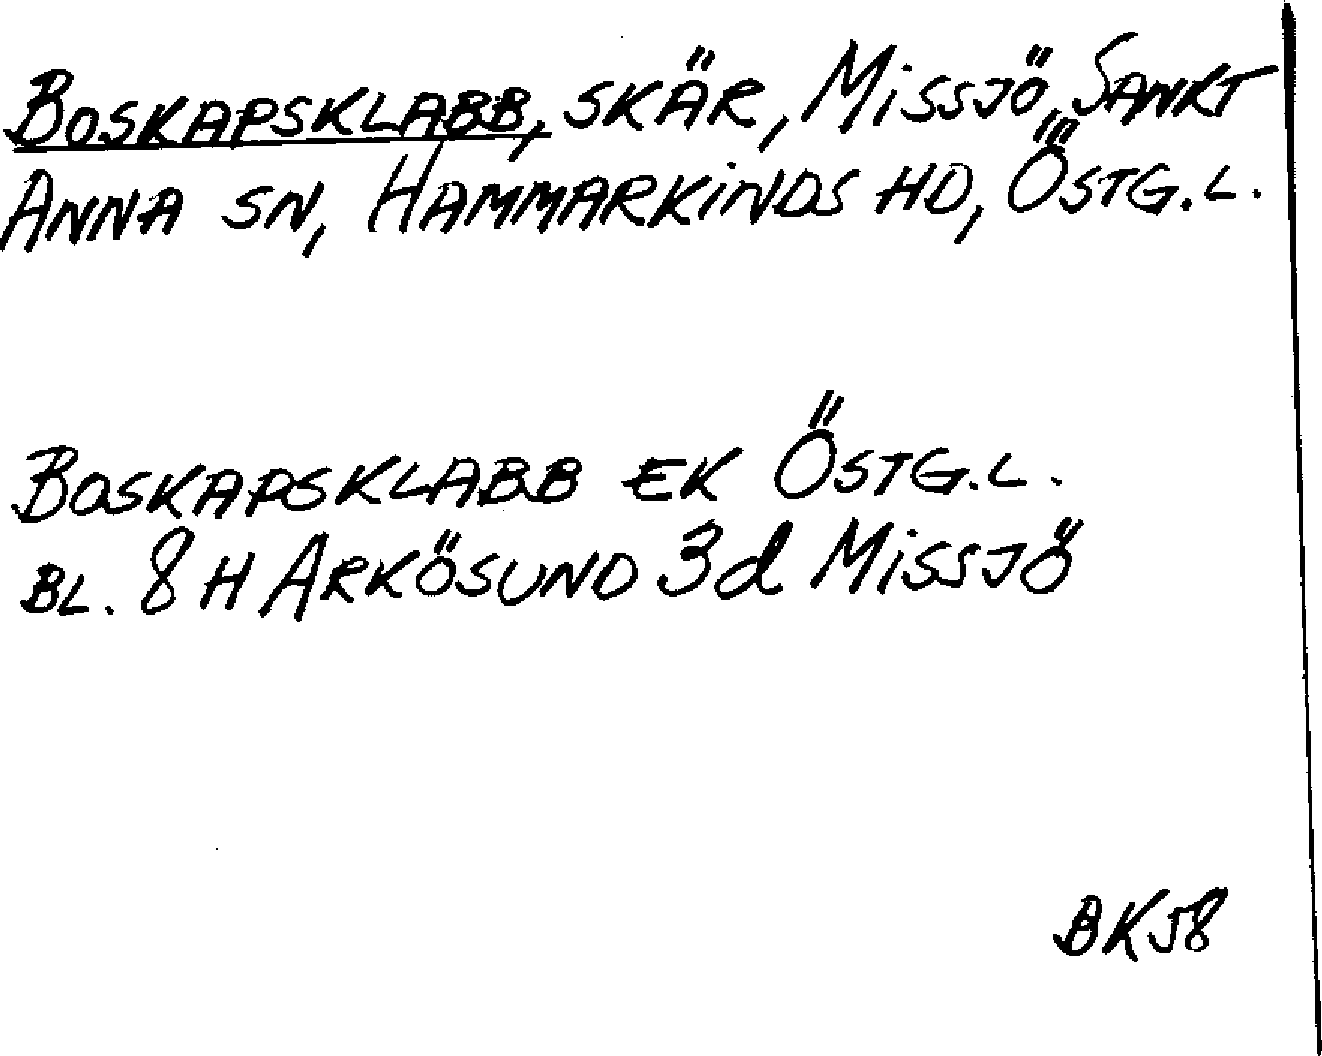 BOSKAPSKLABB, SKÄR, MISSJÖ, SANKT
ANNA SN, HAMMARKINDS HD, ÖSTG.L.
BOSKAPSKLABB EK ÖSTG.L.
BL. 8 H ARKÖSUND 3d MISSJÖ
BK58